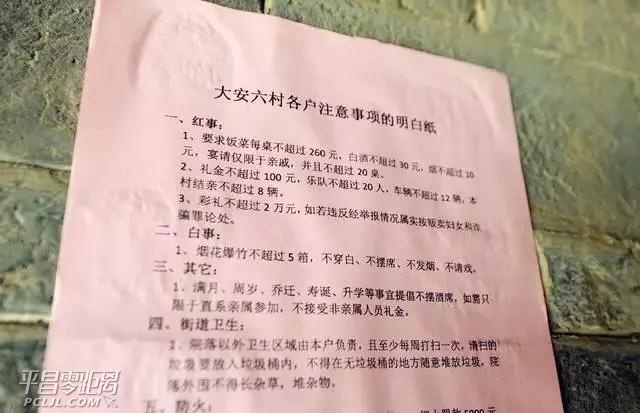 大安六村各户注意事项的明白纸
一、红事：
1、要求饭菜每桌不超过 260 元，白酒不超过 30 元，烟不超过 10
元，宴请仅限于亲戚，并且不超过 20 桌。
2、礼金不超过 100 元，乐队不超过 20 人，车辆不超过 12 辆，本
村结亲不超过 8 辆。
3、彩礼不超过 2 万元，如若违反经举报情况属实按贩卖妇女和诈
骗罪论处。
二、白事：
1、烟花爆竹不超过 5 箱，不穿白、不摆席、不发烟、不请戏。
三、其它：
1、满月、周岁、乔迁、寿诞、升学等事宜提倡不摆酒席，如需只
限于直系亲属参加，不接受非亲属人员礼金。
四、街道卫生：
1、院落以外卫生区域由本户负责，且至少每周打扫一次，清扫的
垃圾要放入垃圾桶内，不得在无垃圾桶的地方随意堆放垃圾，院
落外围不得长杂草，堆杂物。
五、防火：
5000 元
平昌零距离
PCLJL.COM